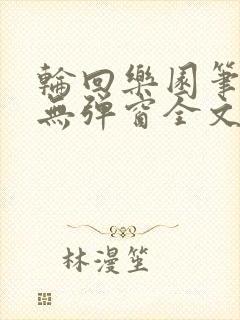 輪回樂園筆
無彈窗全文
林漫笙